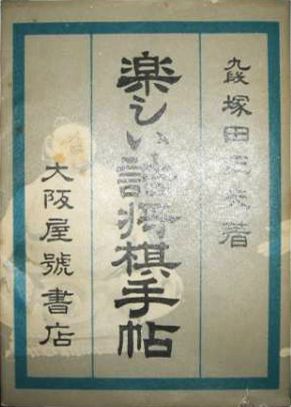 九段 塚田正夫著
楽しい詰将棋手帖
大阪屋號書店